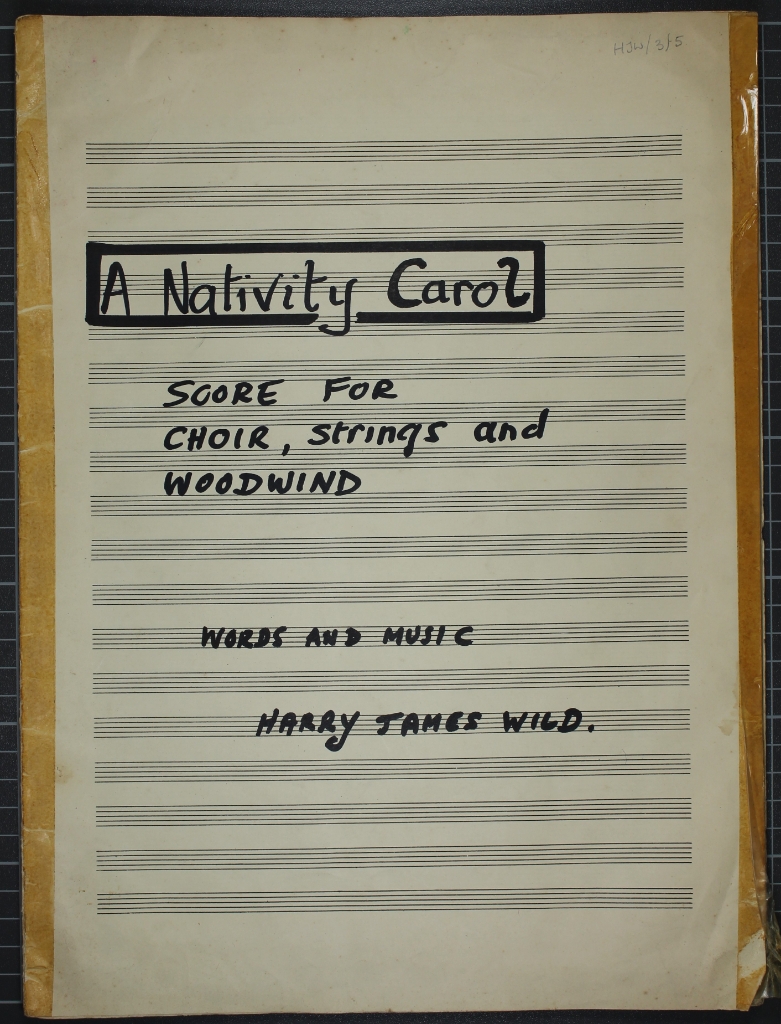 HJW/3/5
A Nativity Carol
SCORE FOR
CHOIR, strings and
WOODWIND
WORDS AND MUSIC
HARRY JAMES WILD.